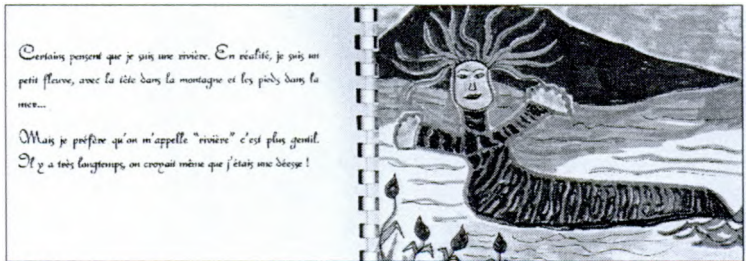 Certains pensent que je suis une rivière. En réalité, je suis un
petit fleuve, avec la tête dans la montagne et les pieds dans la
mer...
Mais je préfère qu'on m'appelle "rivière" c'est plus gentil.
Il y a très longtemps, on croyait même que j'étais une déesse !